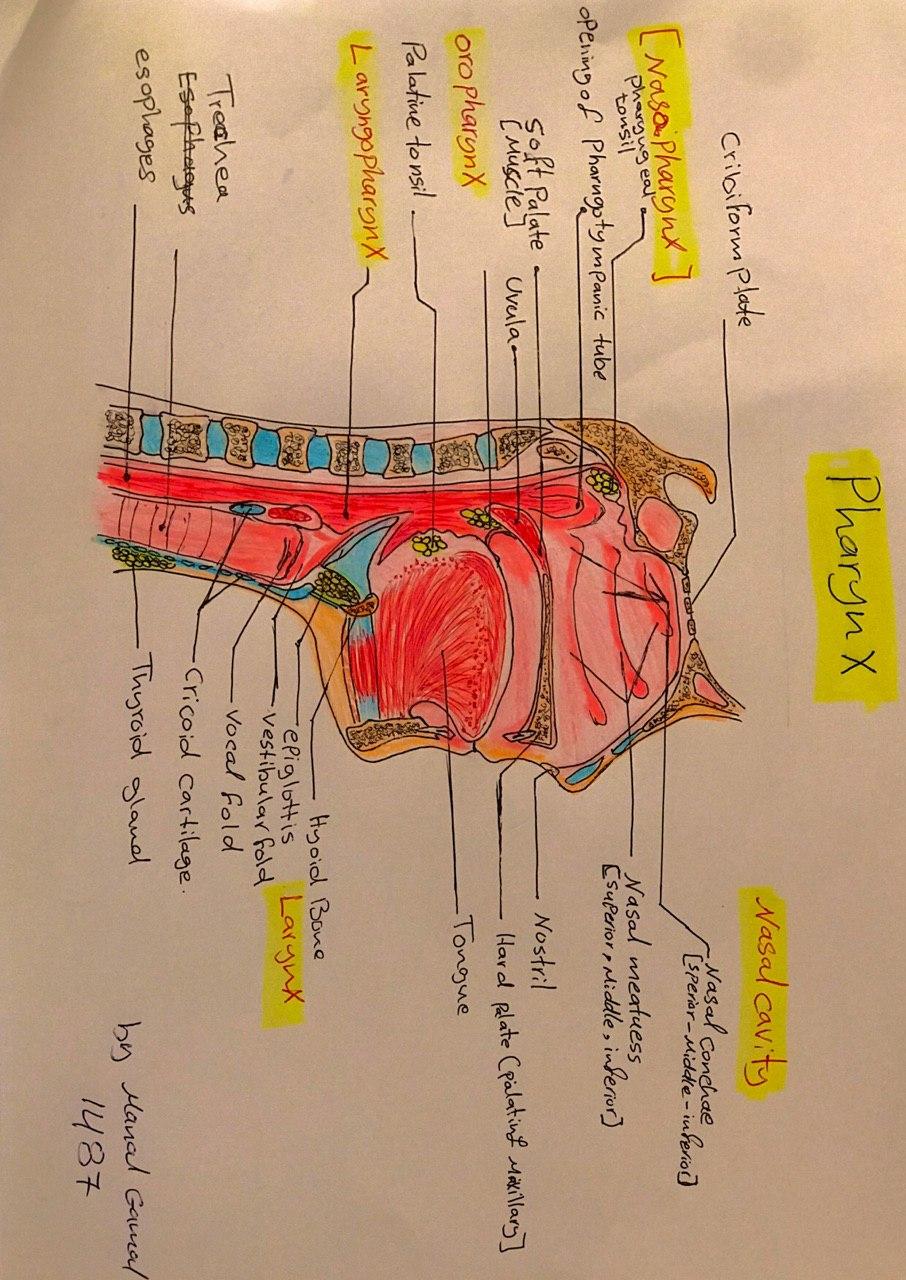 Pharynx
Cribiform plate
[Nasopharynx]
pharyngeal
tonsil
opening of Pharyngotympanic tube
Soft Palate
[Muscle]
Uvula
oropharynx
Palatine tonsil
Laryngopharynx
Trachea
Esophagus
esophages
Nasal cavity
Nasal conchae
[sperior-Middle-inferior]
Nasal meatuess
[superior, Middle, inferior]
Nostril
Hard palate (palatint Maxillary]
Tongue
Hyoid Bone
Larynx
epiglottis
vestibular fold
vocal fold
Cricoid cartilage.
Thyroid gland
by Manal Gamal
1487